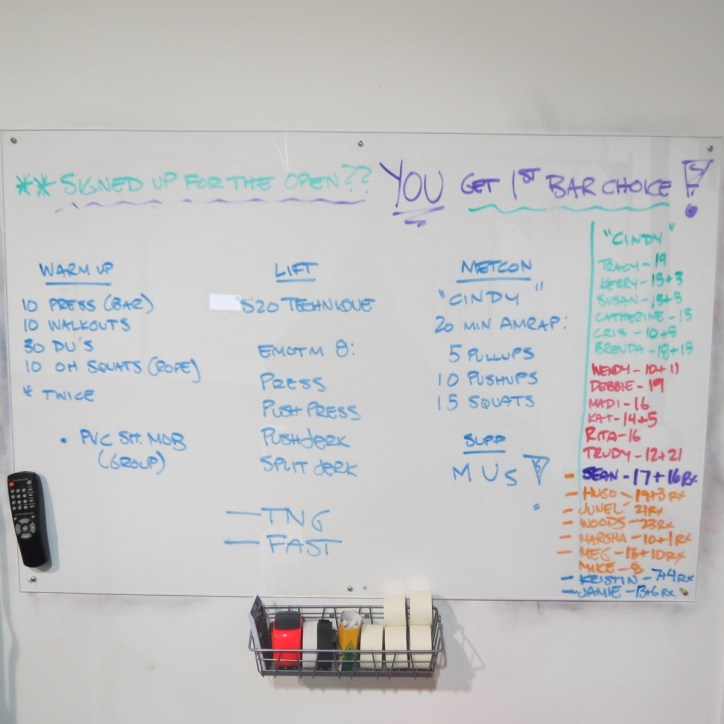 ** SIGNED UP FOR THE OPEN?? YOU GET 1ST BAR CHOICE!
WARM UP
10 PRESS (BAR)
10 WALKOUTS
30 DU'S
10 OH SQUATS (ROPE)
* TWICE
• PVC SH. MOB
(GROUP)
LIFT
S2O TECHNIQUE
EMOTM 8:
PRESS
PUSH PRESS
PUSH JERK
SPLIT JERK
— TNG
— FAST
METCON
"CINDY"
20 MIN AMRAP:
5 PULLUPS
10 PUSHUPS
15 SQUATS
SUPP
MUS!
"CINDY"
TRACY - 19
KERRY - 15+3
SUSAN - 13+5
CATHERINE - 15
CRIS - 10+5
BRENDA - 18+15
WENDY - 10+11
DEBBIE - 19
MADI - 16
KAT - 14+5
RITA - 16
TRUDY - 12+21
- SEAN - 17+16 RX
- HUGO - 19+3 RX
- JUNEL - 21 RX
- WOODS - 23 RX
- MARSHA - 10+1 RX
- MEG - 10 RX
MIKE - 8
- KRISTIN - 7+4 RX
- JAMIE - 13+6 RX